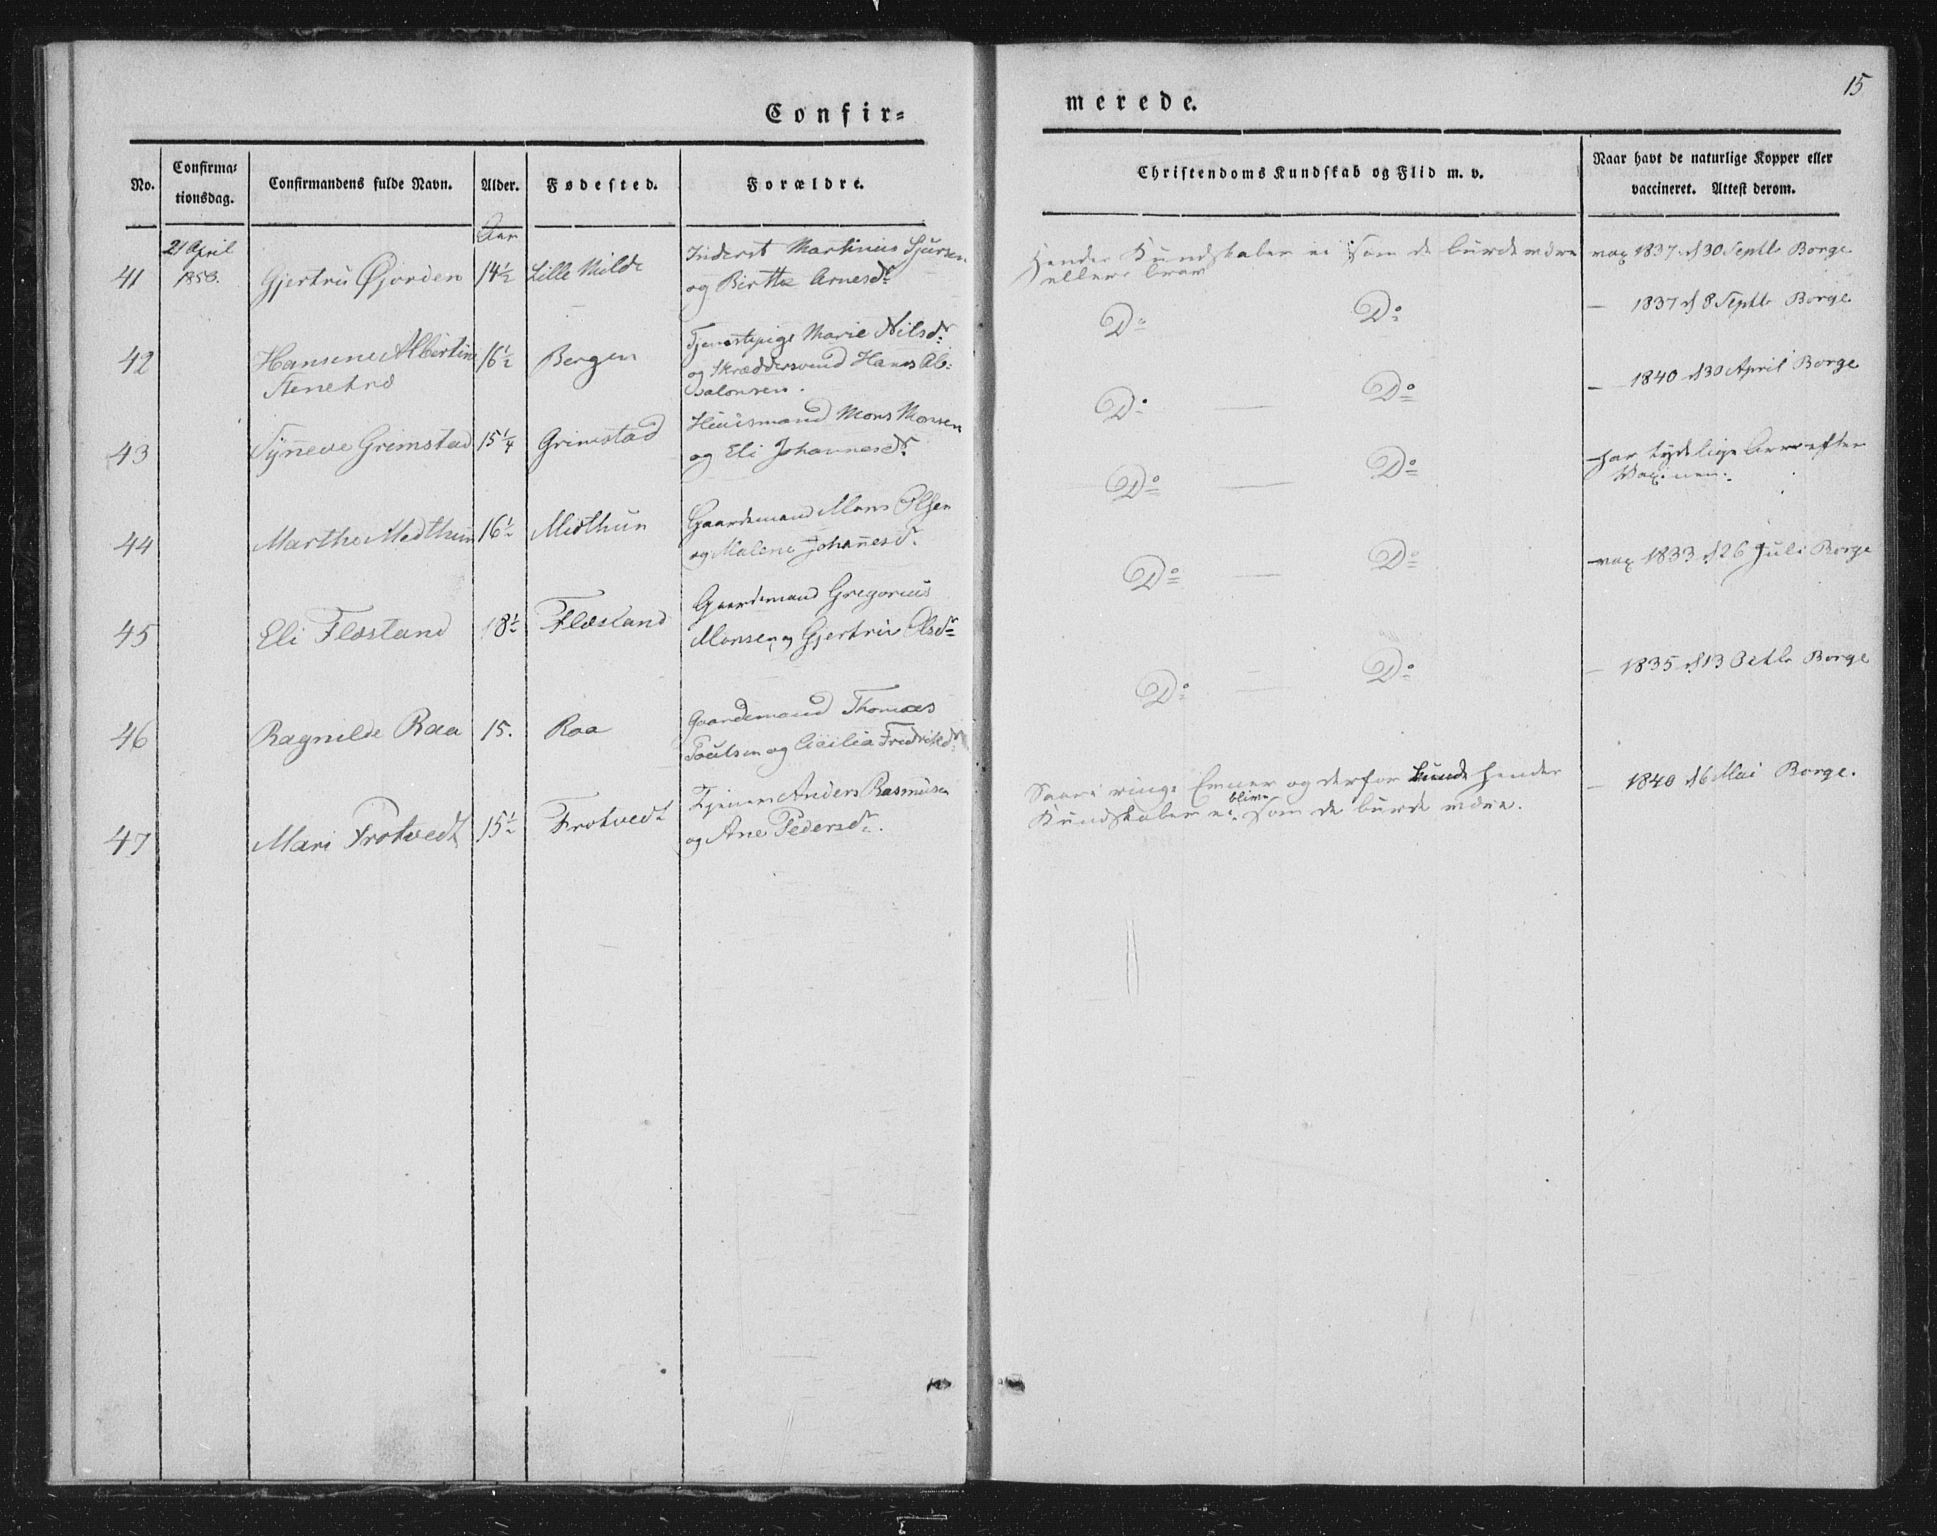 15
Confir=
merede.
No.
Confirma=
tionsdag.
Confirmandens fulde Navn.
Alder.
Fødested.
Forældre.
Christendoms Kundskab og Flid m. v.
Naar havt de naturlige Kopper eller
vaccineret. Attest derom.
Aar
21 April
1853.
41
Gjertru Øjorden
14½
Lille Milde
Inderst Martinus Sjursen
og Birthe Arnesdr.
Hendes Kundskaber ei som de burde være
ellers brav
vax 1837 d 30 Septb Borge
42
Hansine Albertine
Stenetrø
16½
Bergen
Tjenestepige Marie Nilsdr.
og Skræddersvend Hans Ab=
salonsen.
Do Do
— 1837 d 8 Septb Borge
43
Synneve Grimstad
15¼
Grimstad
Huusmand Mons Monsen
og Eli Johannesdr.
Do — Do
— 1840 d 30 April Borge
44
Marthe Midthun
16½
Midthun
Gaardemand Mons Olsen
og Malene Johañesd.
Do — Do
har tydelige Ar efter
Vaxinen.
45
Eli Flæsland
18½
Flæsland
Gaardemand Gregorius
Monsen og Gjertru Olsdr
Do — Do
vax 1833 d 26 Juli Borge
46
Ragnilde Raa
15.
Raa
Gaardemand Thomas
Poulsen og Cicilia Fredriksdr.
Do — Do
— 1835 d 13 Octb Borge
47
Mari Trotvedt
15½
Trotvedt
Tjener Anders Rasmusen
og Ane Pedersdr.
Saare ringe Evner og derfor kunde hendes
Kundskaber ei blive som de burde være.
— 1840 d 6 Mai Borge.